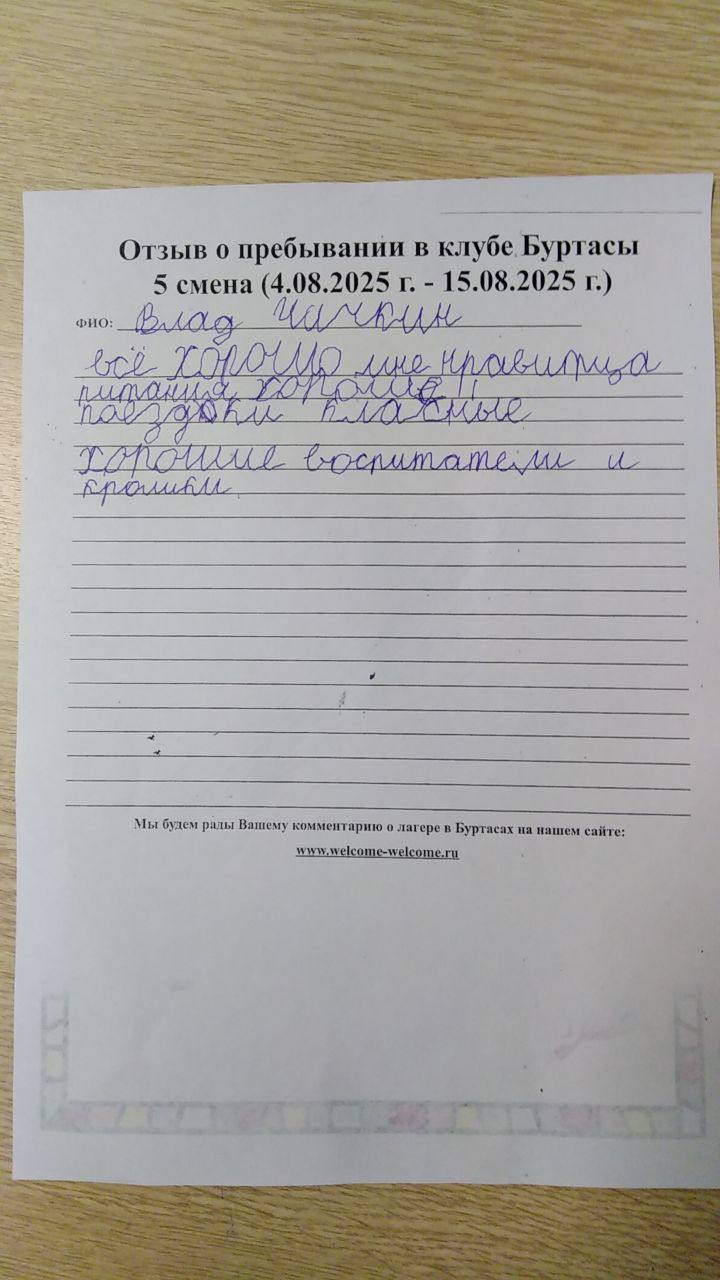 Отзыв о пребывании в клубе Буртасы
5 смена (4.08.2025 г. - 15.08.2025 г.)
ФИО: Влад Чачкин
всё хорошо мне нравитца
питания хорошие!!
паездки класные
хорошие воспитатели и
кролики.
Мы будем рады Вашему комментарию о лагере в Буртасах на нашем сайте:
www.welcome-welcome.ru